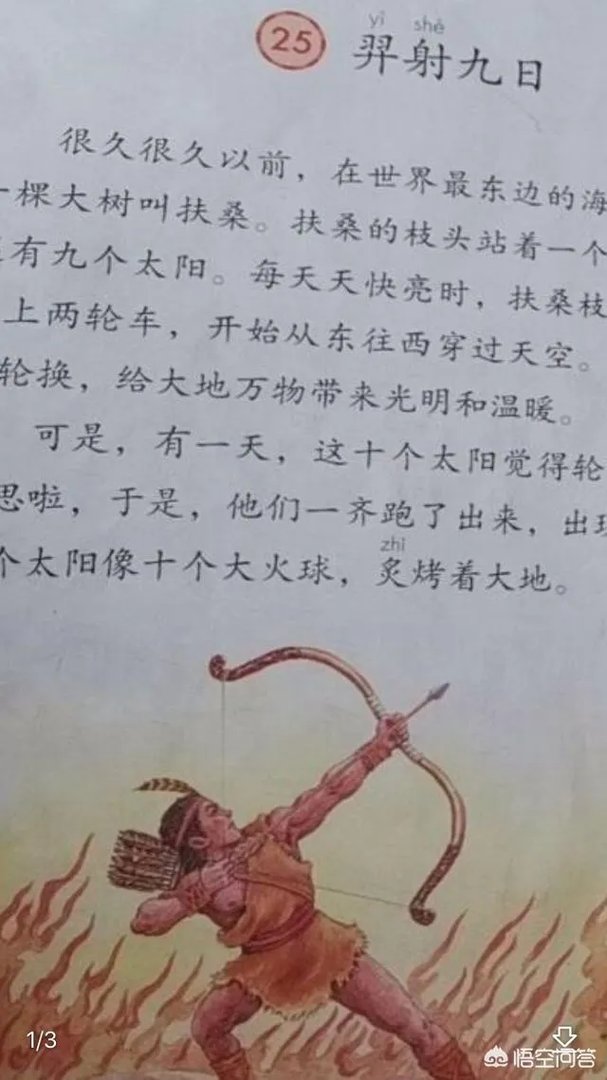 yì shè
25 羿射九日
很久很久以前，在世界最东边的海
一棵大树叫扶桑。扶桑的枝头站着一个
有九个太阳。每天天快亮时，扶桑枝
上两轮车，开始从东往西穿过天空。
轮换，给大地万物带来光明和温暖。
可是，有一天，这十个太阳觉得轮
思啦，于是，他们一齐跑了出来，出现
zhì
个太阳像十个大火球，炙烤着大地。
1/3
悟空问答